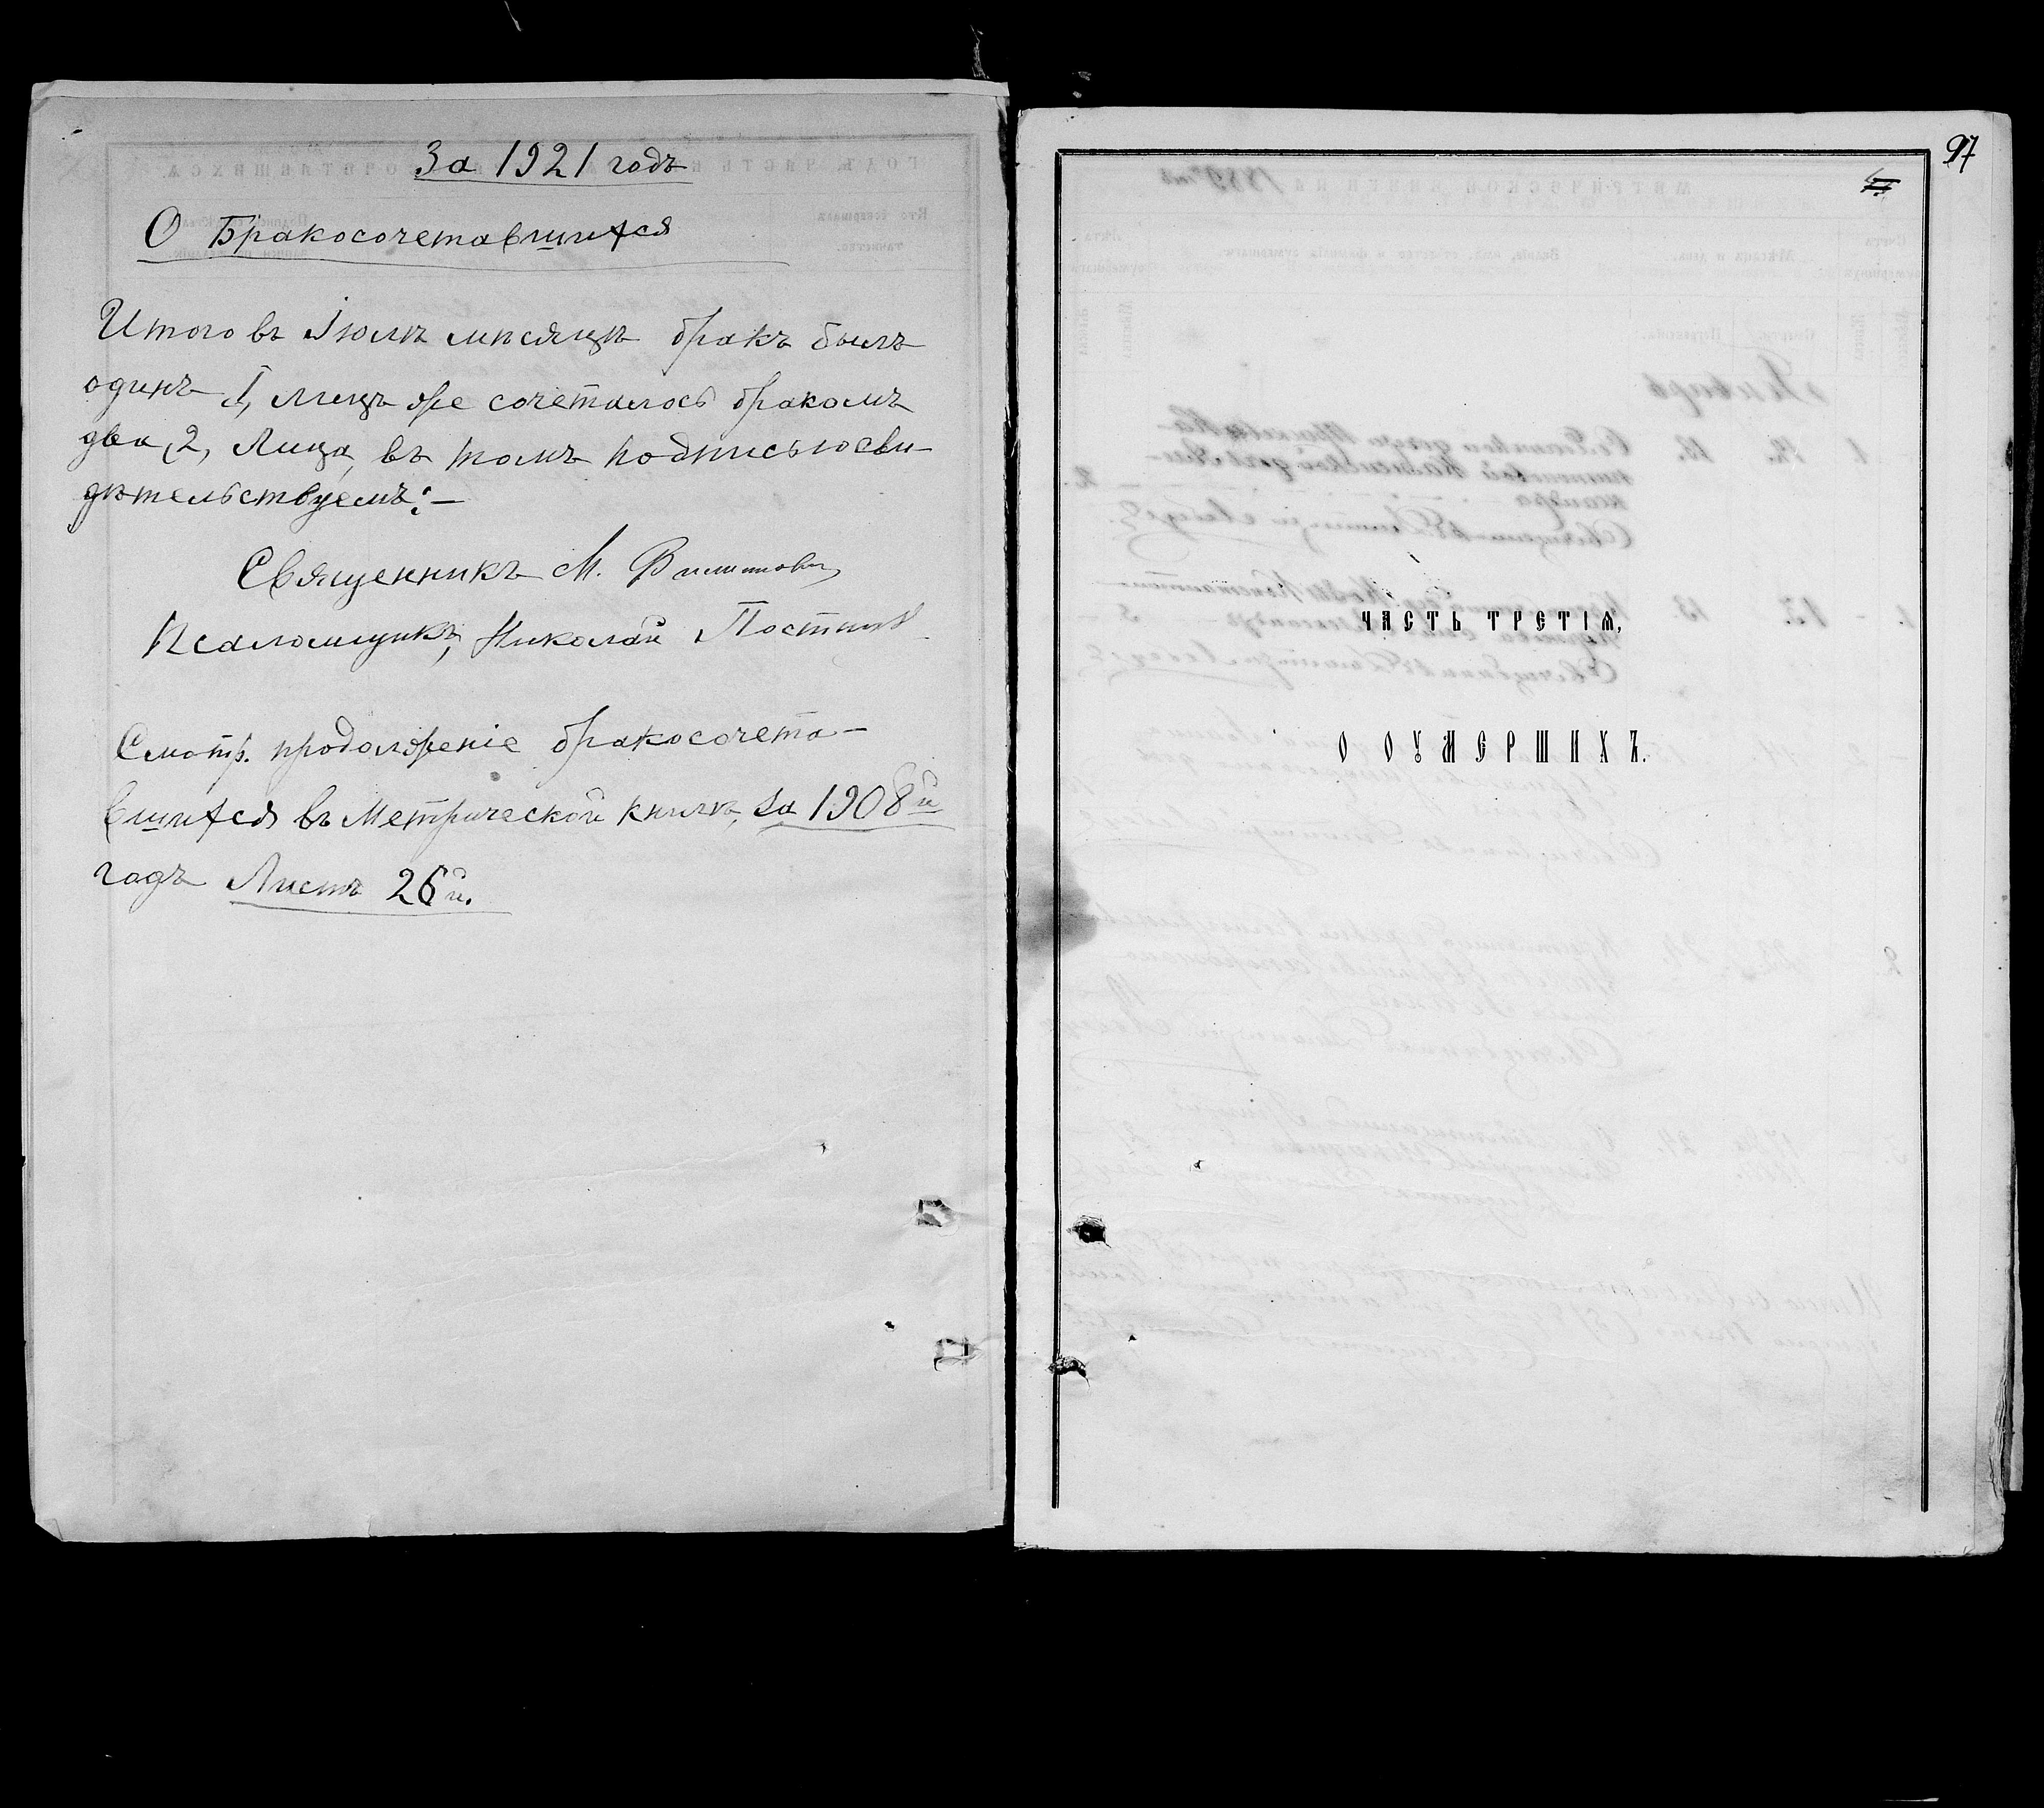 За 1921 годъ
О Бракосочетавшихся
Итого въ Іюлѣ мѣсяцѣ бракъ былъ
одинъ 1, Лицъ же сочеталось бракомъ
два, 2, Лица, въ томъ подписью сви-
дѣтельствуемъ:-
Священникъ М.
Псаломщикъ, Николай
Смотр. продолженіе бракосочета-
вшихся въ Метрической книгѣ, за 1908й
годъ Листъ 26й.
97
ЧАСТЬ ТРЕТІѦ,
О ОУМЕРШИХЪ.